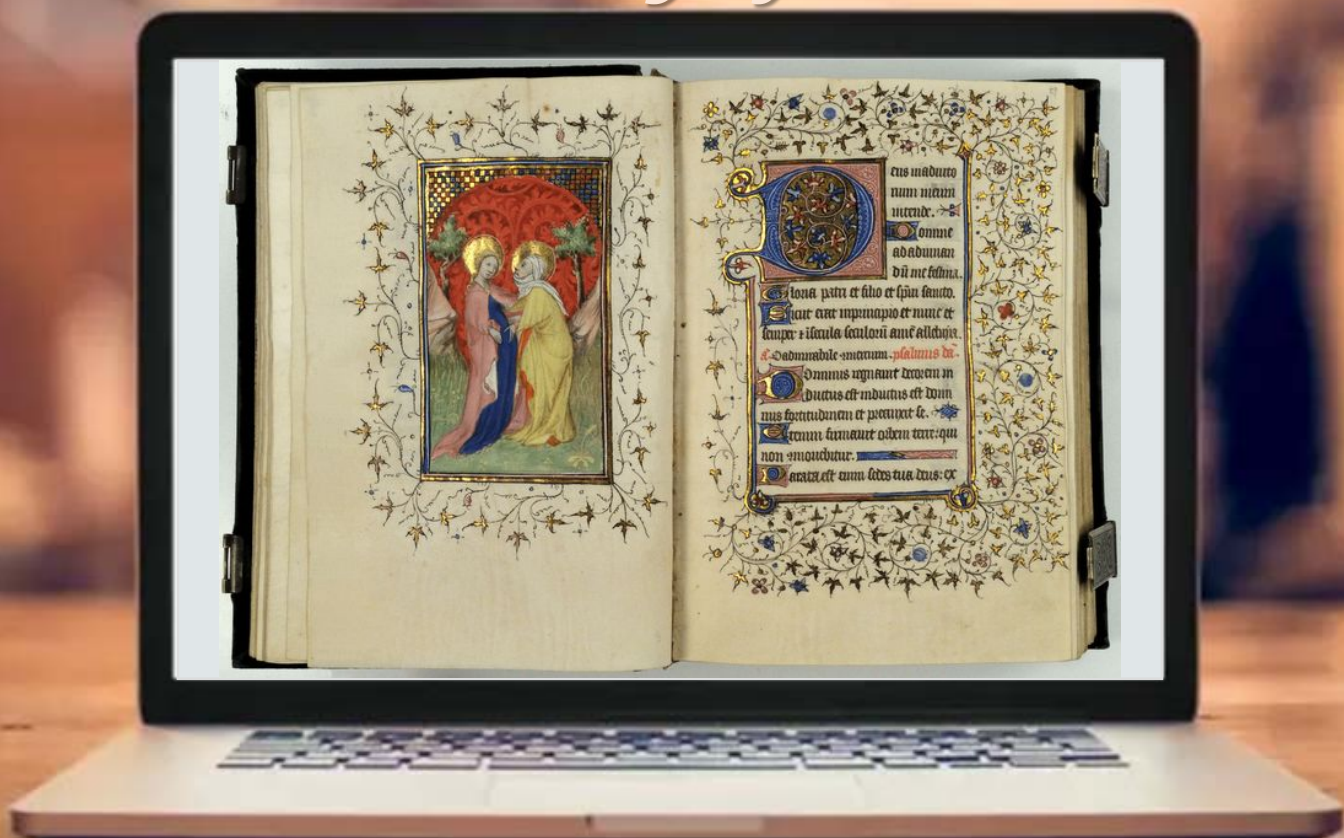 Deus in adiuto
rium meum
intende.
Domine
ad adiuuan
dū me festina.
Gloria patri et filio et spiri sancto.
Sicut erat in principio et nunc et
semper et i secula seculorū amē alleluya.
a. O admirabile psalmus dā.
Dominus regnauit decorem in
dutus est indutus est domi
nus fortitudinem et precinxit se.
Etenim firmauit orbem terre: qui
non
Parata est enim sedes tua deus: ex